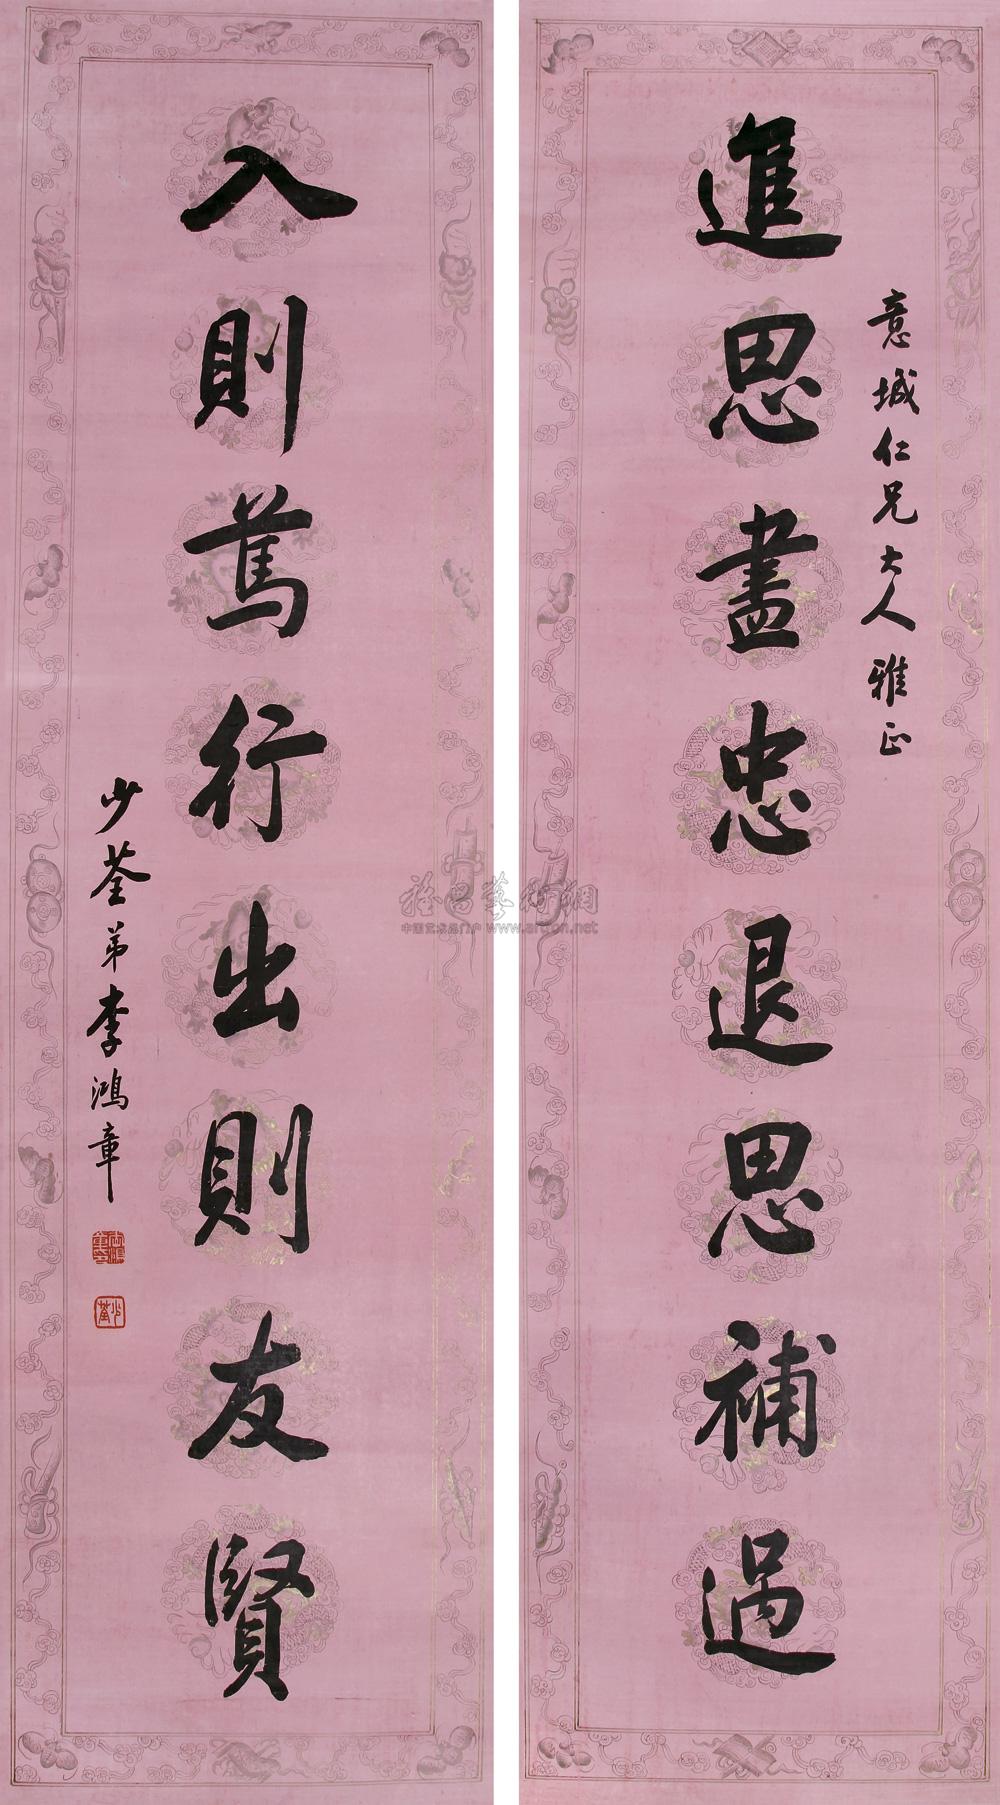 進思盡忠退思補過
意城仁兄大人雅正
入則篤行出則友賢
少荃弟李鴻章
少荃
中国艺术品门户 www.artron.net